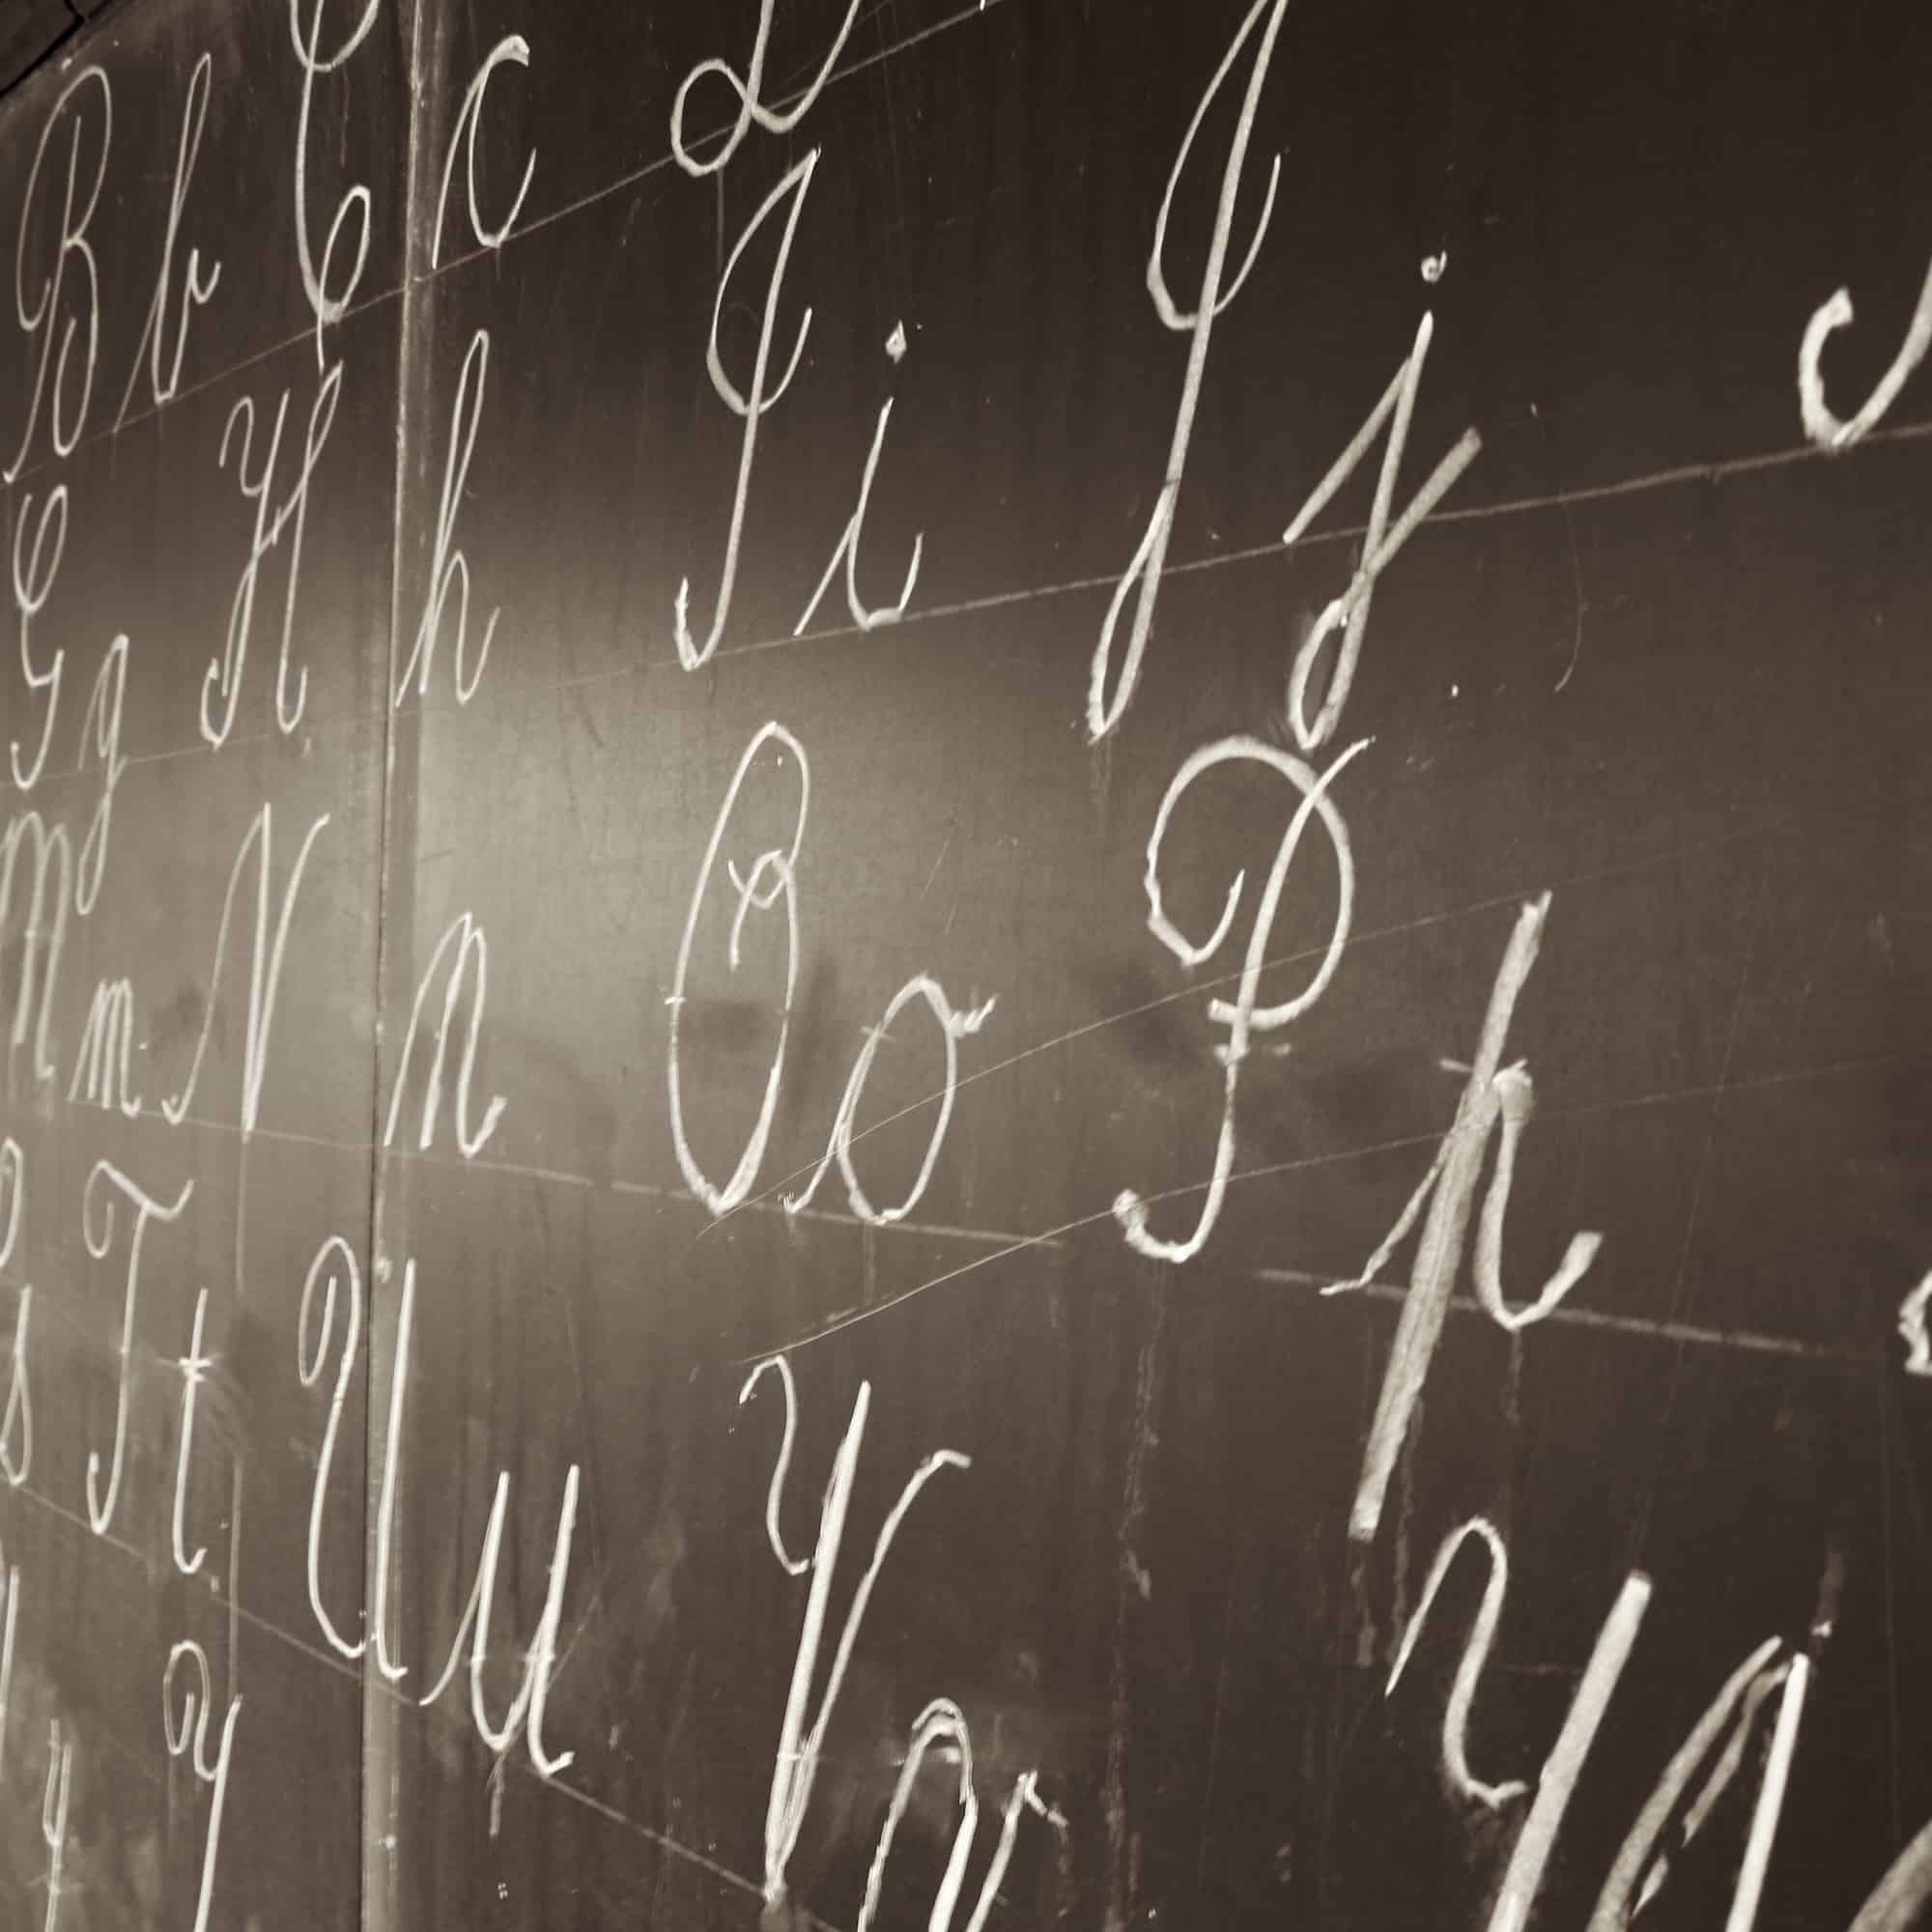 B b C c D
G g H h I i J j
M m N n O o P p
s T t U u V v W
y